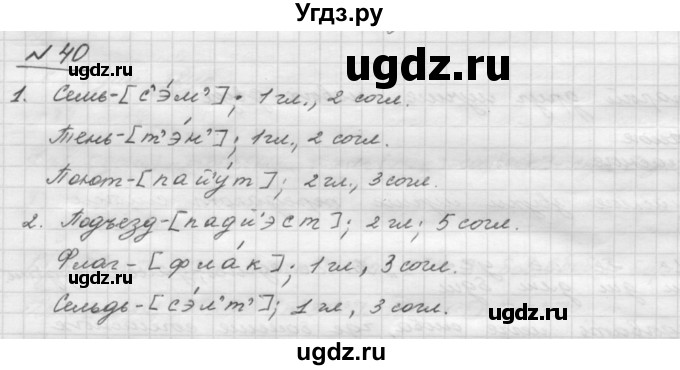 Угдз.ру
№ 40
ugdz.ru ugdz.ru
1. Семь-[с'э́м']; 1гл., 2 согл.
Тень-[т'э́н']; 1гл., 2 согл.
ugdz.ru
Поют-[пай'у́т]; 2гл., 3согл.
2. Подъезд-[падй'эст]; 2гл; 5 согл.
ugdz.ru ugdz.ru
Флаг-[фла́к]; 1гл, 3согл.
Сельдь-[сэ́л'т']; 1гл, 3 согл.
ugdz.ru ugdz.ru
ugdz.ru